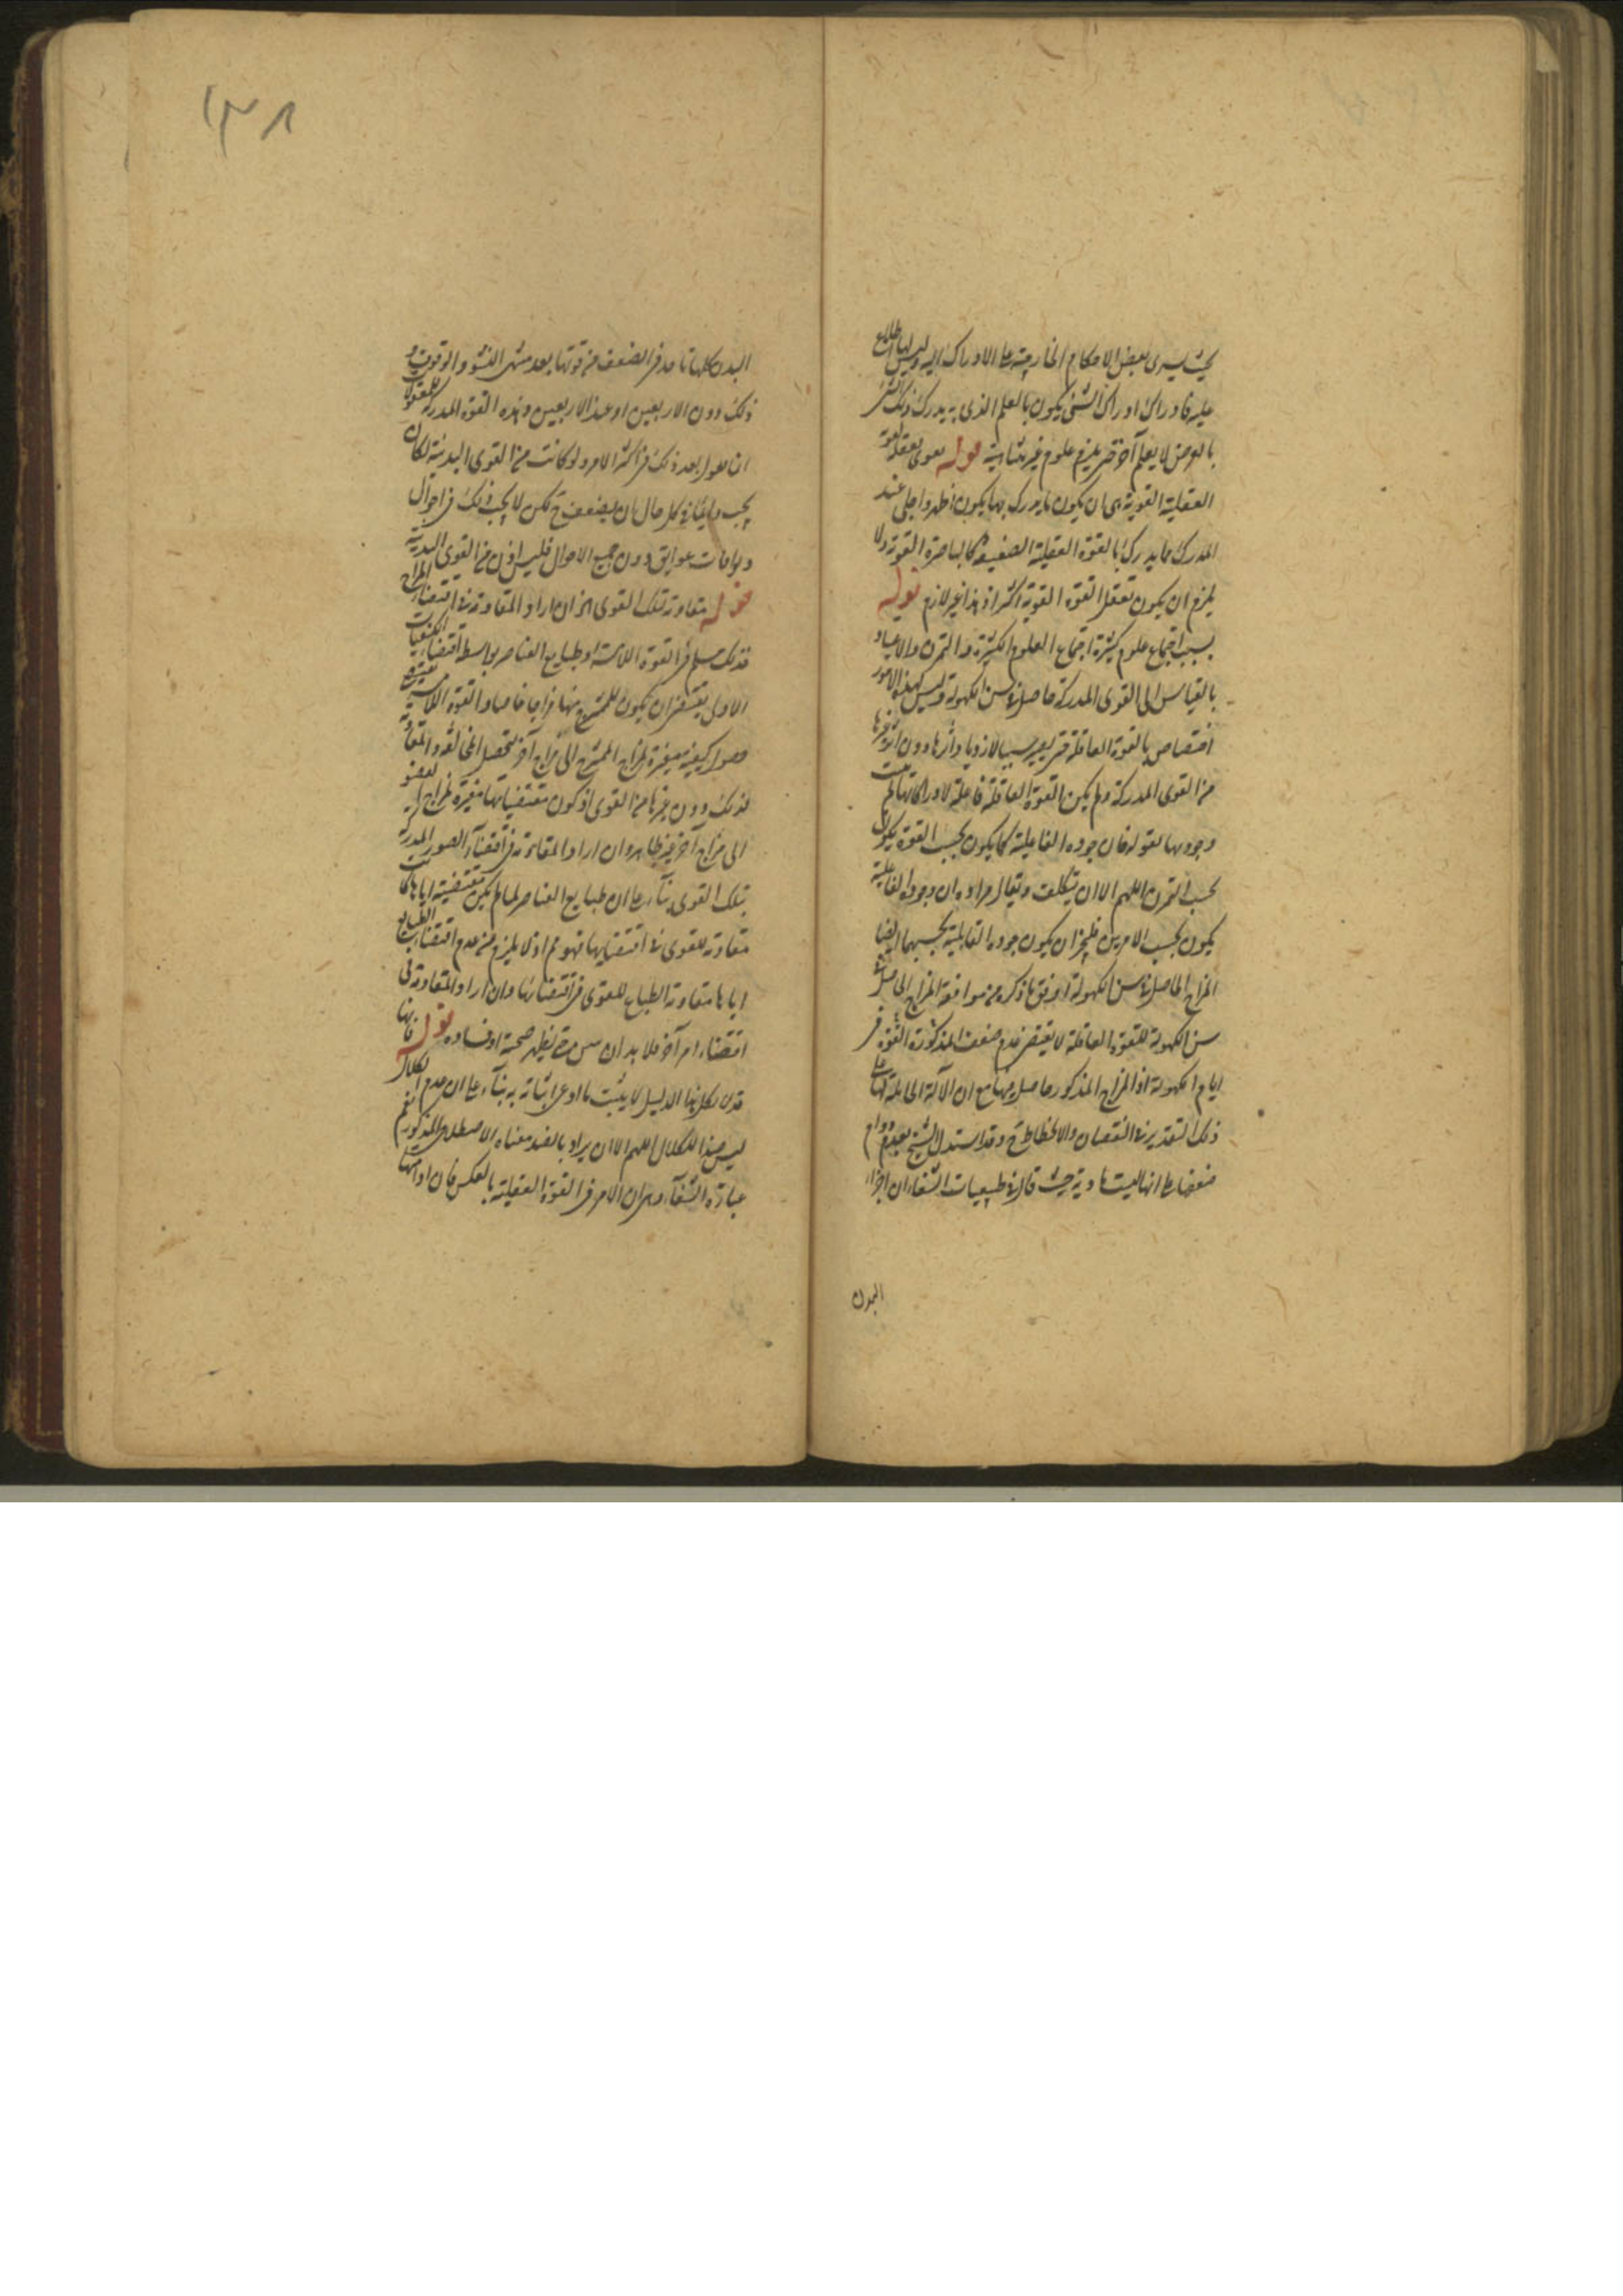 بحيث يسرى بعض الاحكام الخارجية على الادراك اليه وليس لها اطلاع
عليه فادراك ادراك الشئ يكون بالعلم الذى به يدرك ذلك الشئ
بالعرض لا بعلم آخر حتى يلزم علوم غير متناهية قوله
العقلية القوية اى ان يكون ما يدرك بها يكون اظهر واجلى عند
المدرك مما يدرك بالقوة العقلية الضعيفة كالباصرة القوية ولا
يلزم ان يكون تعقل القوة القوية اكثر اذ هذا غير لازم قوله
بسبب اجتماع علوم كثيرة اجتماع العلوم الكثيرة والتمرن والاعتياد
بالقياس الى القوى المدركة حاصل فى سن الكهولة وليس لهذه الامور
اختصاص بالقوة العاقلة حتى يصير سببا لازدياد اثرها دون اثر غيرها
من القوى المدركة ولم يكن القوة العاقلة فاعلة لادراكاتها
وجودها لقوله فان جودة الفاعلية كما يكون بحسب القوة يكون
بحسب التمرن اللهم الا ان يتكلف ويقال مراده ان جودة الفاعلية
يكون بحسب الامرين فليجز ان يكون جودة القابلية بحسبهما ايضا
المزاج الحاصل فى سن الكهولة اوفق ما ذكره من موافقة المزاج الحاصل فى
سن الكهولة للقوة العاقلة لا يقتضى عدم ضعف المذكورة القوة فى
ايام الكهولة اذ المزاج المذكور حاصل فيها مع ان الآلة الحاملة لها على
ذلك التقدير فى النقصان والانحطاط وقد استدل الشيخ بعدم دوام
ضعفها على انها ليست مادية حيث قال فى طبيعيات الشفاء ان اجزاء
البدن
١٣٨
البدن كلها تأخذ فى الضعف من قوتها بعد منتهى النشو والوقوف و
ذلك دون الاربعين او عند الاربعين وهذه القوة المدركة للمعقولات
انما تقوى بعد ذلك فى اكثر الامر ولو كانت من القوى البدنية لكان
يجب دائما فى كل حال ان يضعف ح لكن لا يجب ذلك فى احوال
وموافات عوايق دون جميع الاحوال فليس اذن من القوى البدنية
قوله مقاومة تلك القوى الخ ان اراد المقاومة فى اقتضاء المزاج
فذلك مسلم فى القوة اللامسة اذ طبايع العناصر بواسطة اقتضاء الكيفيات
الاول يقتضى ان يكون للممتزج منها مزاجا خاصا والقوة اللامسة
حصول كيفية مغيرة لمزاج الممتزج الى مزاج آخر فتحصل المخالفة والمقاومة
لذلك دون غيرها من القوى اذ كون مقتضياتها مغيرة لمزاج العضو
الى مزاج آخر غير ظاهر وان اراد المقاومة فى اقتضاء الصور المدركة
بتلك القوى بناء على ان طبايع العناصر لما لم يكن مقتضية اياها كانت
مقاومة للقوى فى اقتضائها فهو مم اذ لا يلزم من عدم اقتضاء الطبايع
اياها مقاومة الطباع للقوى فى اقتضائها وان اراد المقاومة فى
اقتضاء امر آخر فلا بد ان يبين حتى يظهر صحته او فساده قوله فانها
قد لا تكل هذا الدليل لا يثبت ما ادعى اثباته به بناء على ان عدم الكلال
ليس ضد الكلال اللهم الا ان يراد بالضد معناه الاصطلاحى المذكور نعم
عبارة الشفاء وهى ان الامر فى القوة العقلية بالعكس فان ادامتها